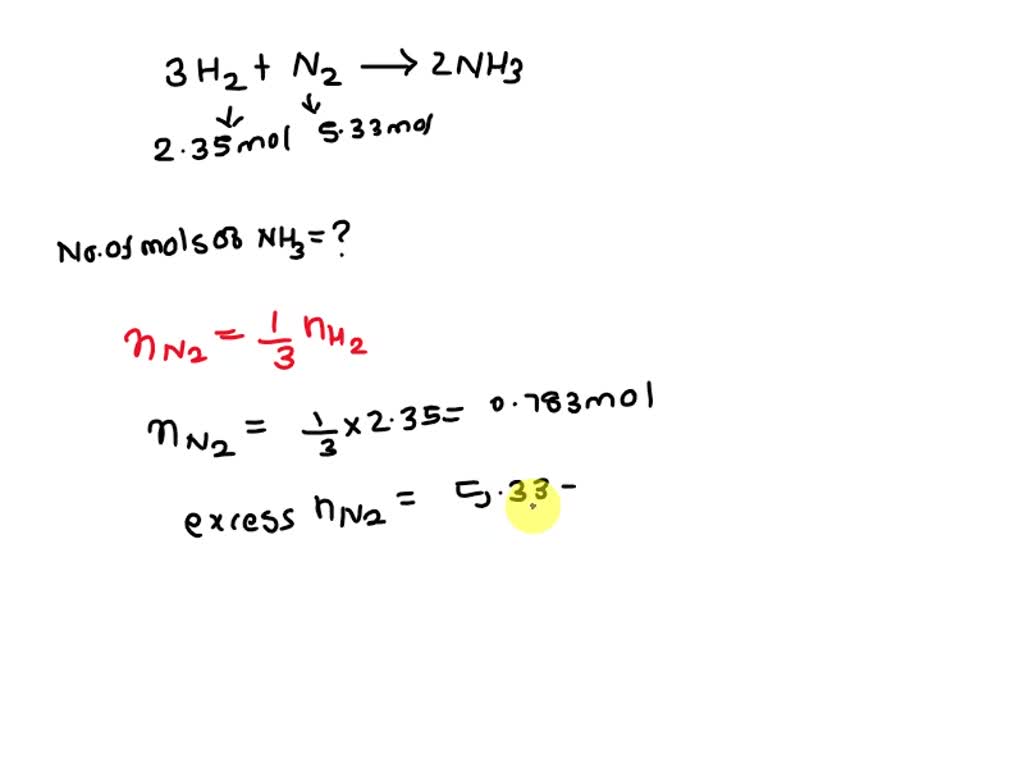 3H₂ + N₂ → 2NH₃
2.35mol 5.33mol
No.of mols of NH₃=?
nN₂ = 1/3 nH₂
nN₂ = 1/3 × 2.35 = 0.783mol
excess nN₂ = 5.33 -